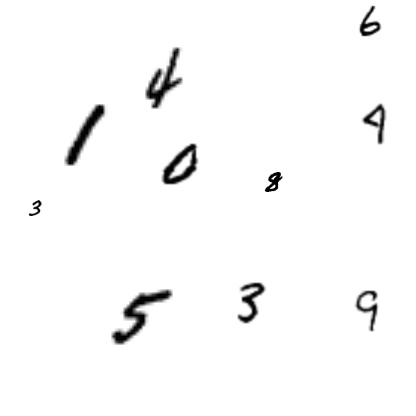 6
4
1 4
0 8
3
5 3 9